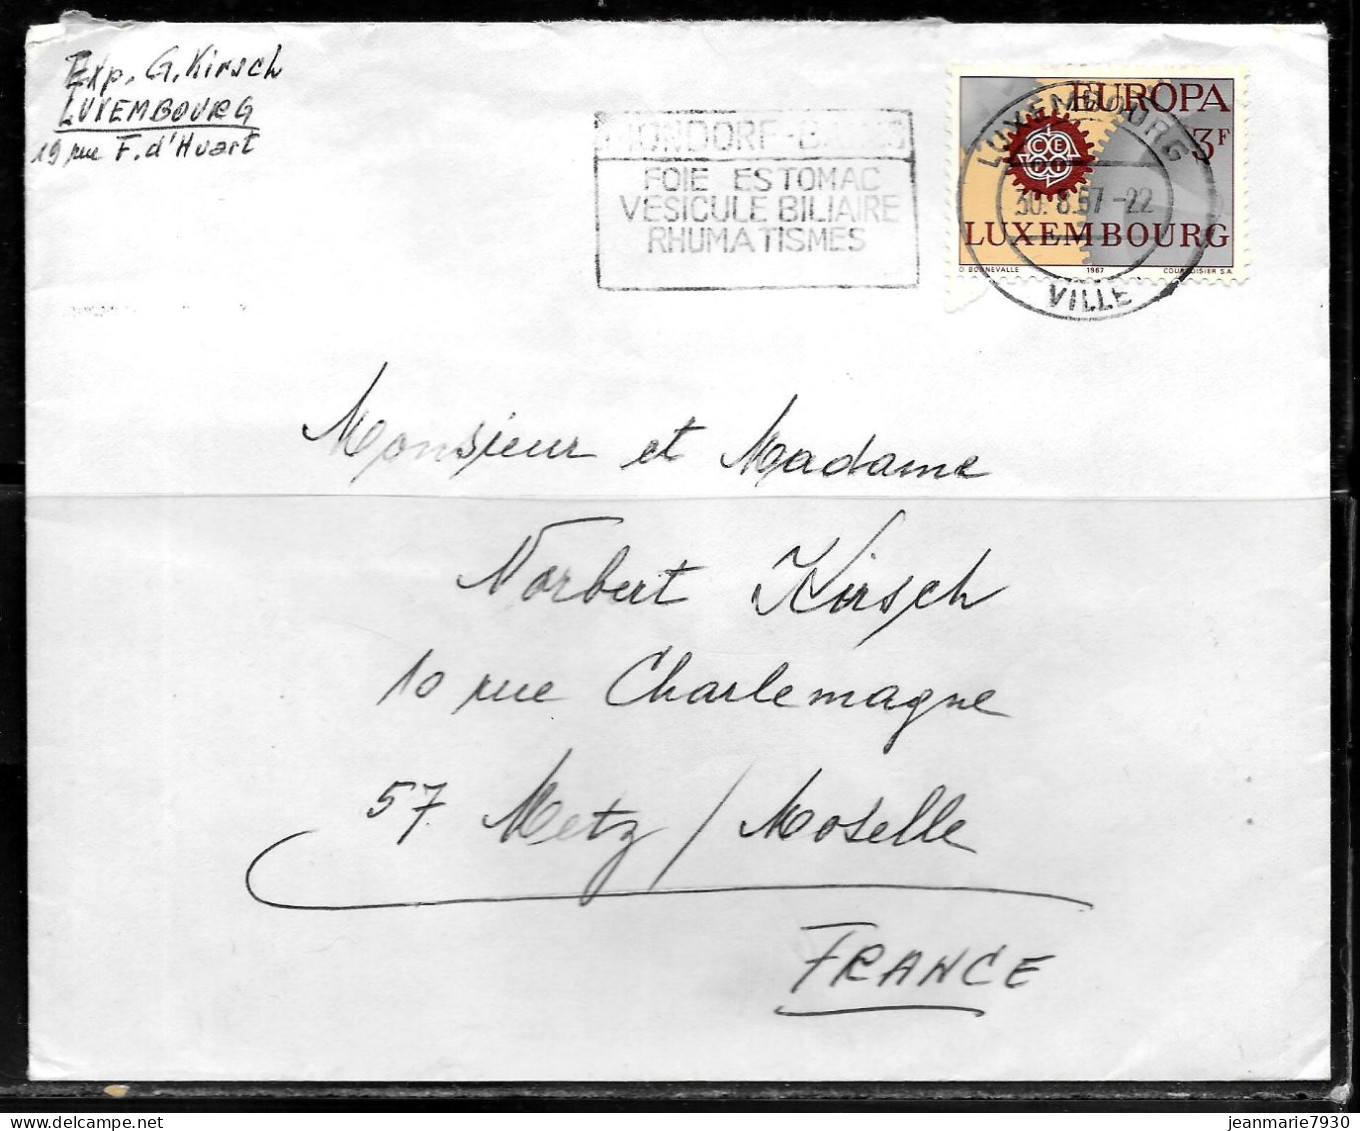 Exp. G. Kirsch
LUXEMBOURG
19 rue F. d'Huart
MONDORF-BAINS
FOIE ESTOMAC
VESICULE BILIAIRE
RHUMATISMES
EUROPA
3F
CE
LUXEMBOURG
D. BONNEVALLE 1967 COURVOISIER S.A.
LUXEMBOURG
30.8.67-22
VILLE
Monsieur et Madame
Norbert Kirsch
10 rue Charlemagne
57 Metz / Moselle
FRANCE
jeanmarie7930